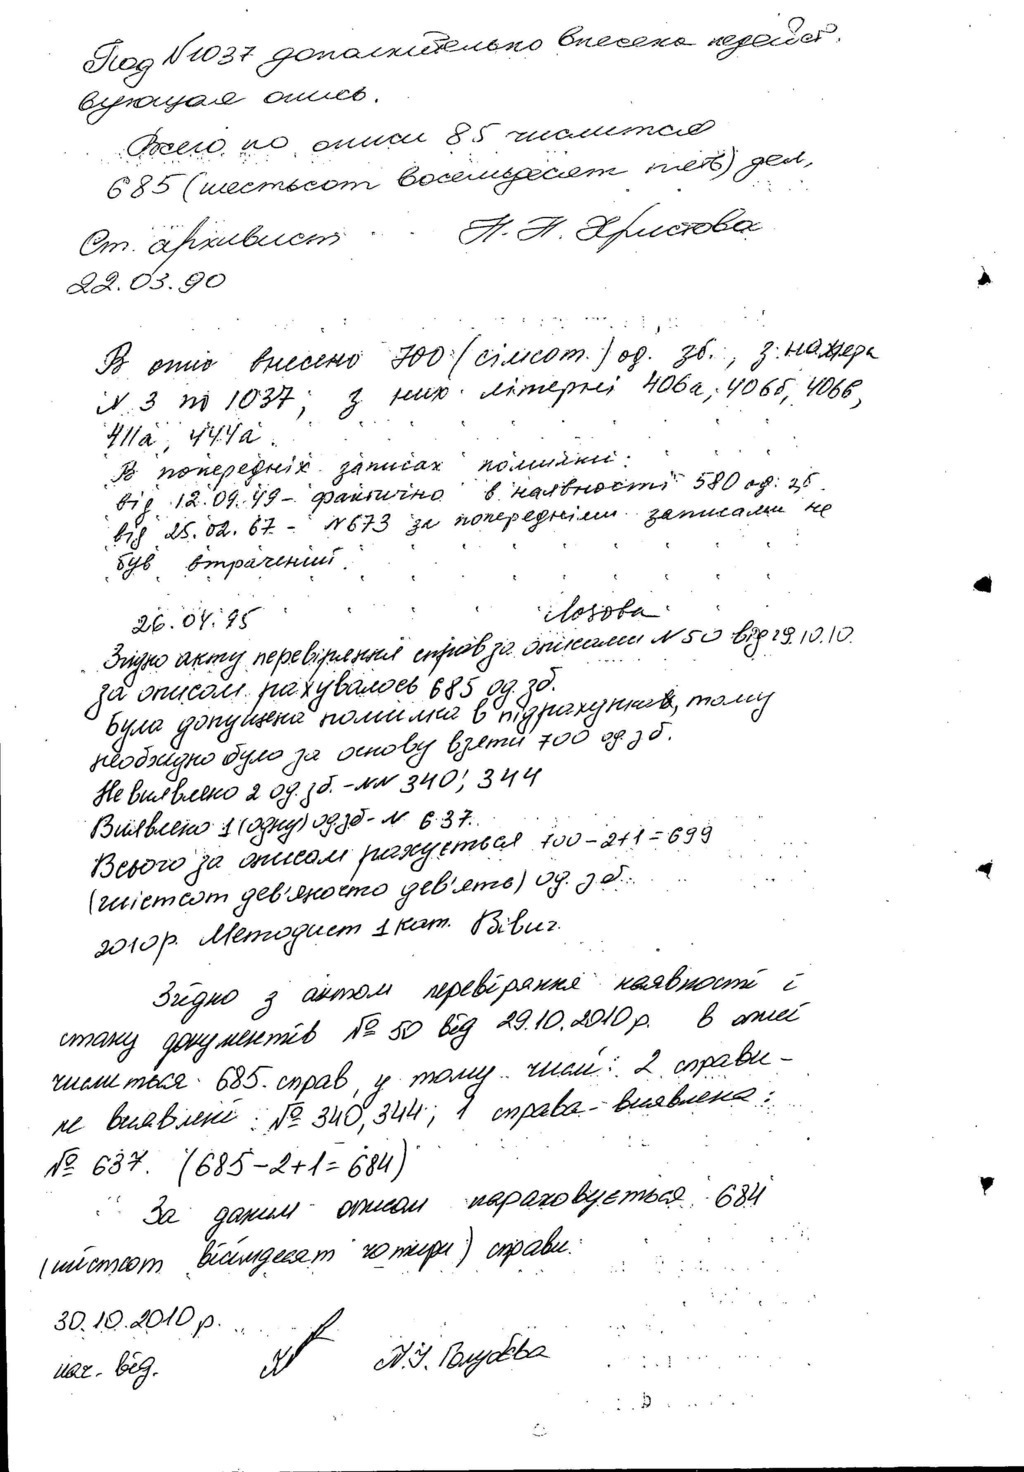 Под N1037 дополнительно внесена недейст.
вующая опись.
Всего по описи 85 числится
685 (шестьсот восемьдесят пять) дел,
Ст. архивист Н. П. Христова
22.03.90
В опис внесено 700 (сімсот) од. зб., з номера
N 3 по 1037; з них літерні 406а, 406б, 406в,
411а, 444а.
В попередніх записах помилки:
від 12.09.49 - фактично в наявності 580 од. зб.
від 25.02.67 - N673 за попередніми записами не
був втрачений.
26.04.95 Лозова
Згідно акту перевіряння справ за описами N50 від 29.10.10.
за описом рахувалось 685 од. зб.
Була допущена помилка в підрахунках, тому
необхідно було за основу взяти 700 од. зб.
Не виявлено 2 од. зб. - NN 340; 344
Виявлено 1 (одну) од. зб - N 637.
Всього за описом рахується 700-2+1=699
(шістсот дев'яносто дев'ять) од. зб.
2010р. Методист 1 кат. Вівич
Згідно з актом перевіряння наявності і
стану документів № 50 від 29.10.2010р. в описі
числиться 685 справ, у тому числі: 2 справи -
не виявлені: № 340, 344; 1 справа - виявлена:
№ 637. (685-2+1=684)
За даним описом нараховується 684
(шістсот вісімдесят чотири) справи.
30.10.2010 р.
нач. від. Голубєва